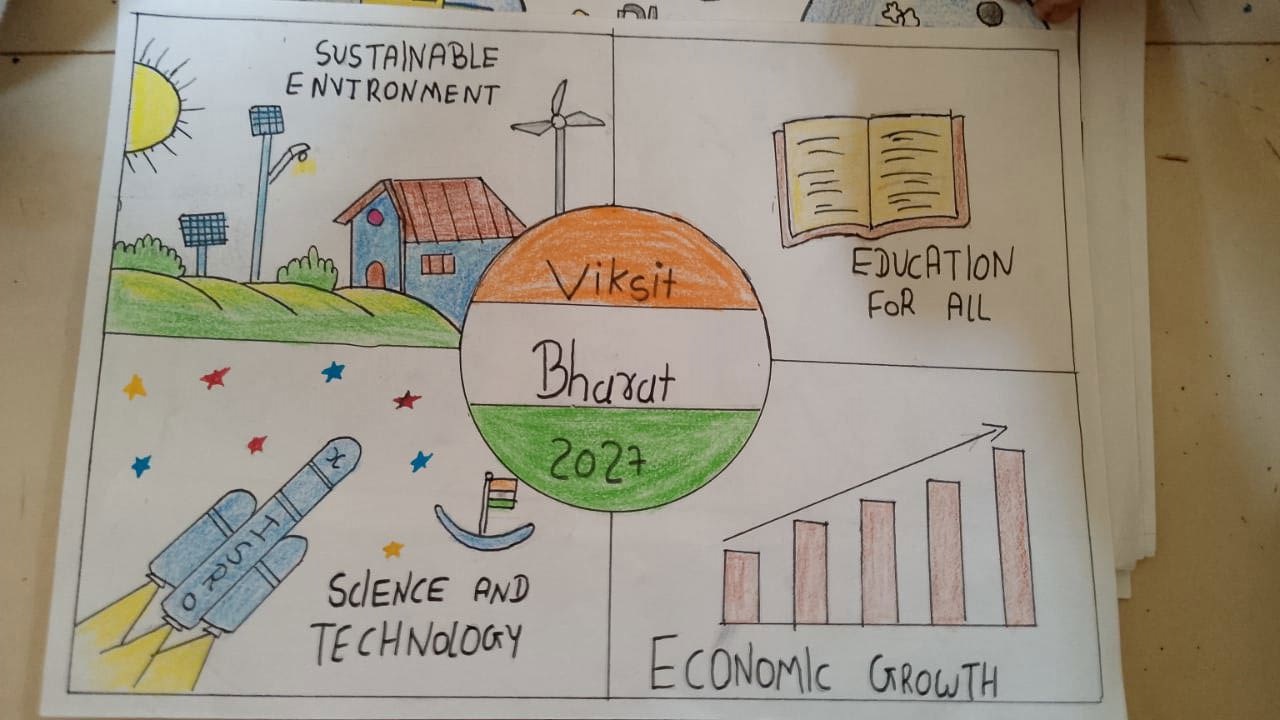 SUSTAINABLE
ENVIRONMENT
EDUCATION
FOR ALL
Viksit
Bharat
2027
X ISRO
SCIENCE AND
TECHNOLOGY
ECONOMIC GROWTH